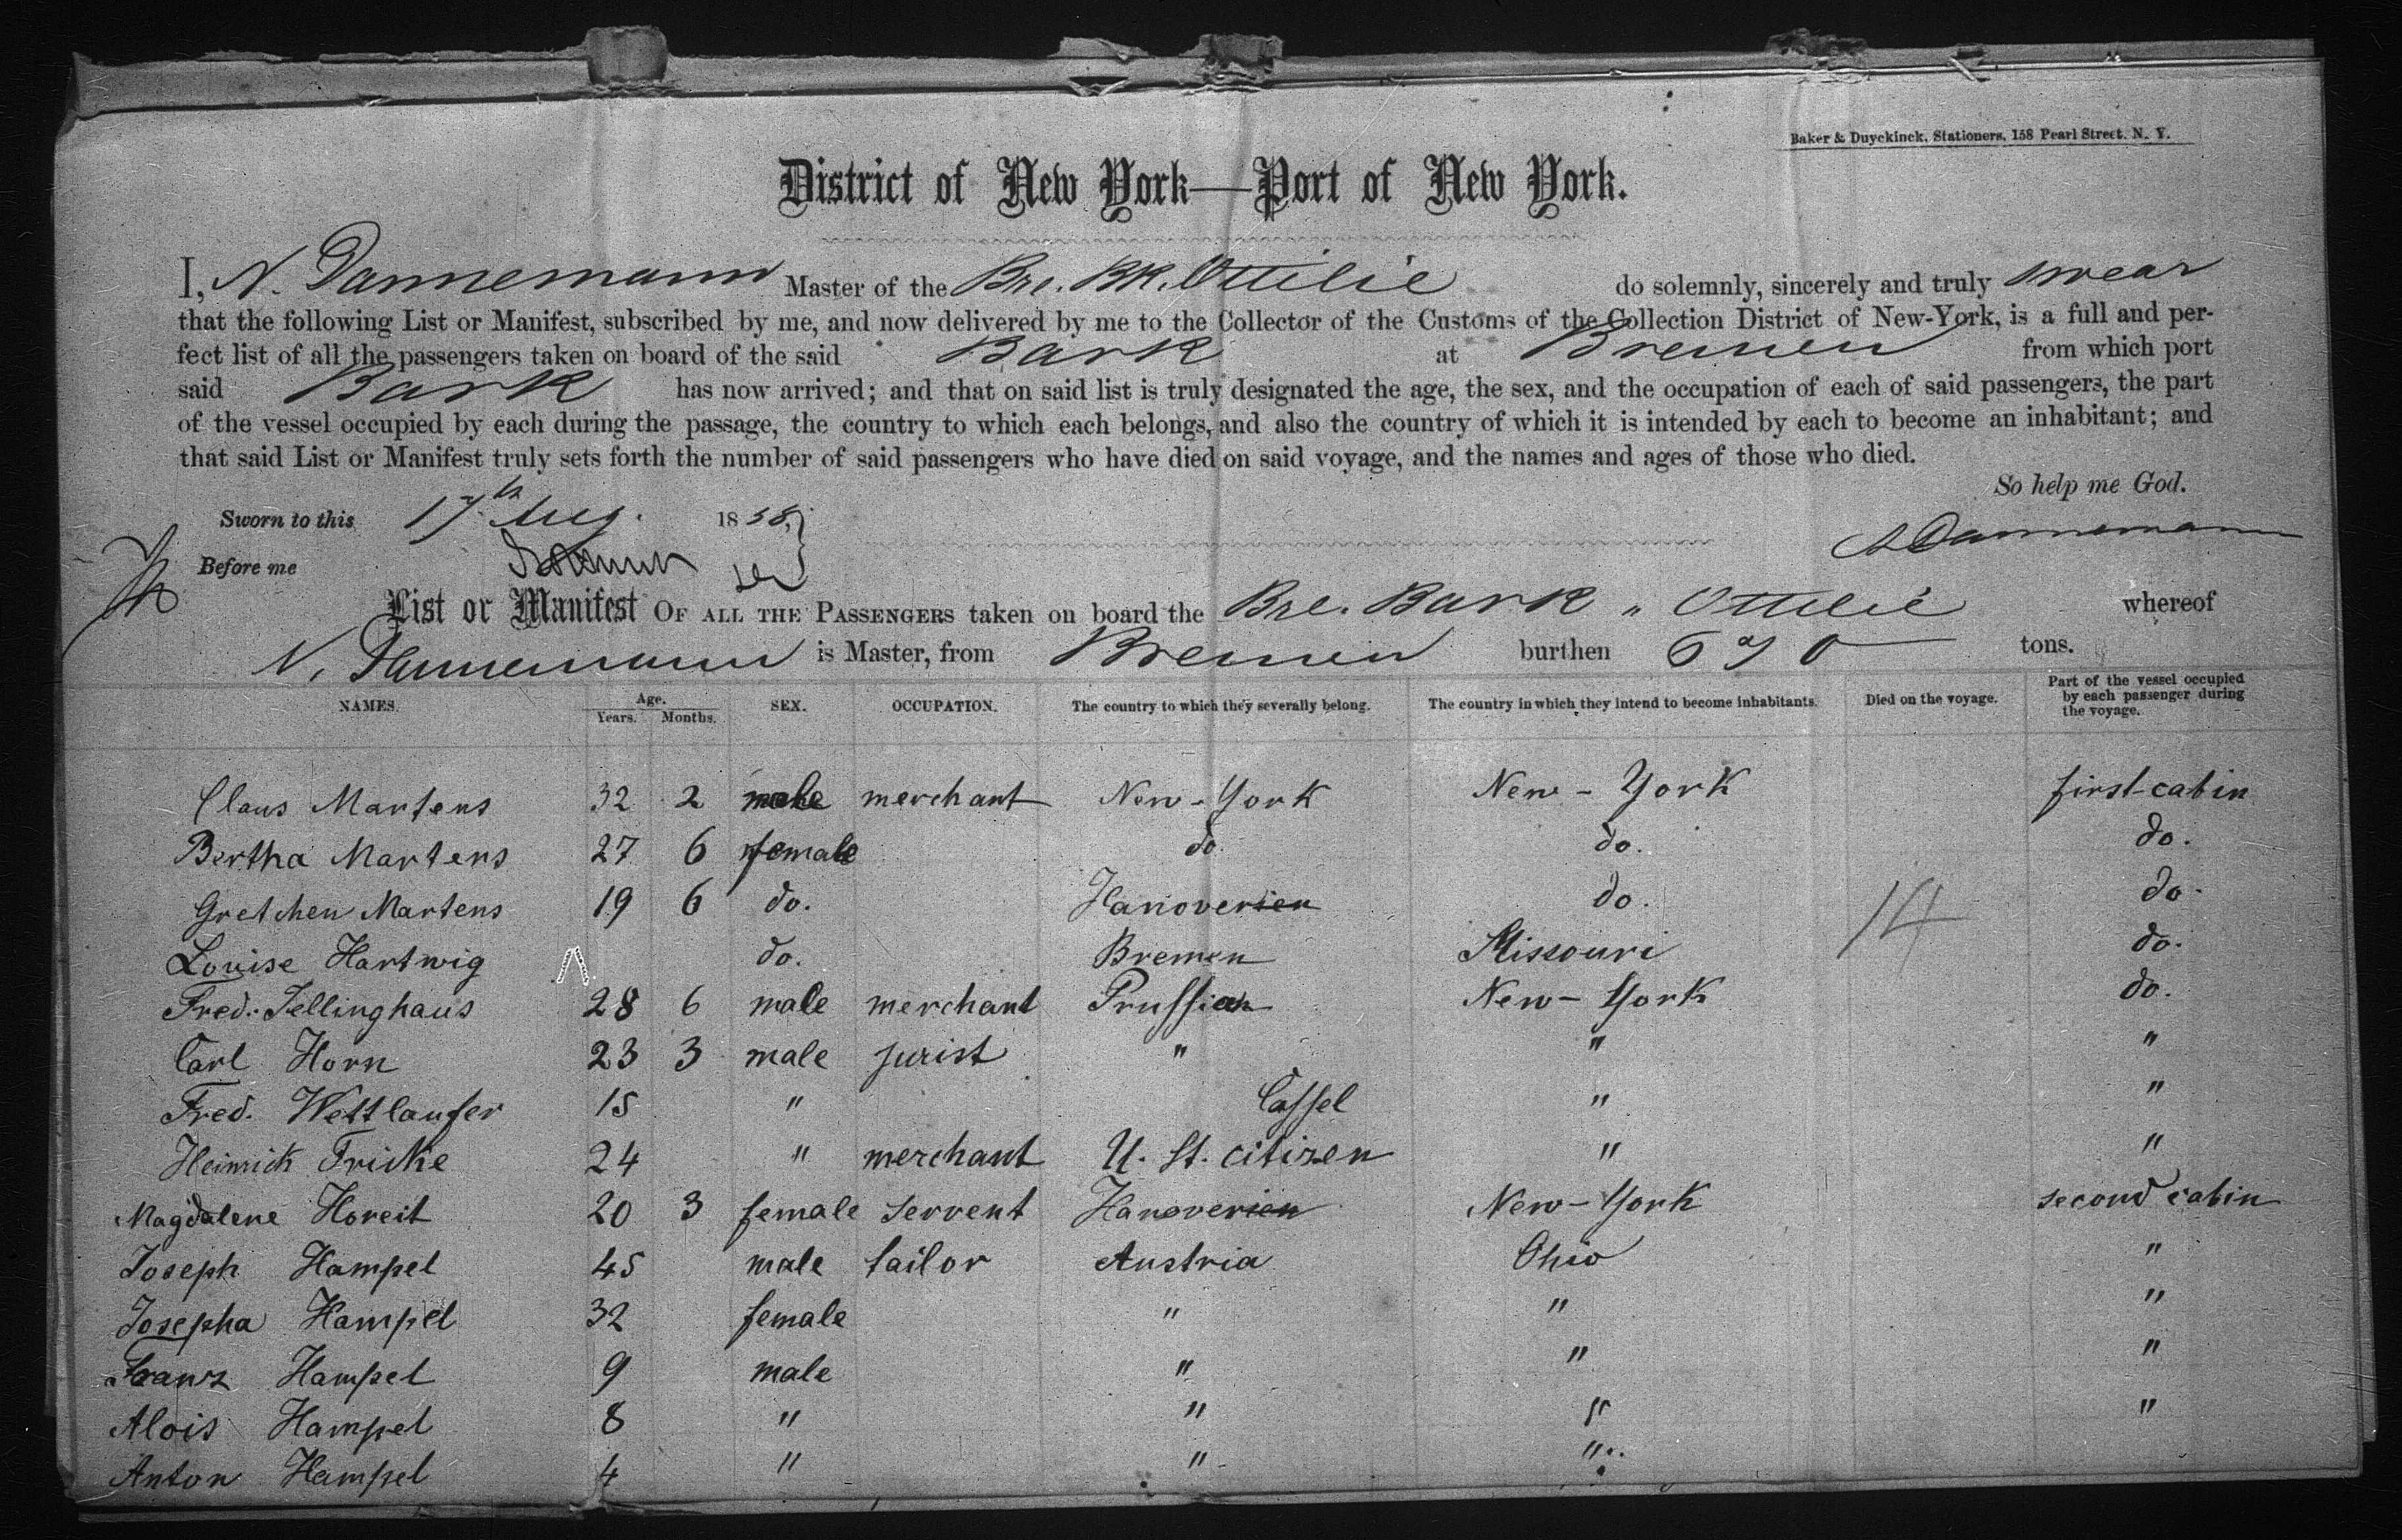 Baker & Duyckinck, Stationers, 158 Pearl Street, N. Y.
District of New York—Port of New York.
I, N. Dannemann Master of the Bre. Bk. Ottilie do solemnly, sincerely and truly swear
that the following List or Manifest, subscribed by me, and now delivered by me to the Collector of the Customs of the Collection District of New-York, is a full and per-
fect list of all the passengers taken on board of the said Bark at Bremen from which port
said Bark has now arrived; and that on said list is truly designated the age, the sex, and the occupation of each of said passengers, the part
of the vessel occupied by each during the passage, the country to which each belongs, and also the country of which it is intended by each to become an inhabitant; and
that said List or Manifest truly sets forth the number of said passengers who have died on said voyage, and the names and ages of those who died.
So help me God.
Sworn to this 17th Aug. 1858.
N Dannemann
Before me
List or Manifest OF ALL THE PASSENGERS taken on board the Bre. Bark " Ottilie whereof
N. Dannemann is Master, from Bremen burthen 670 tons.
NAMES. Age. Years. Months. SEX. OCCUPATION. The country to which they severally belong. The country in which they intend to become inhabitants. Died on the voyage. Part of the vessel occupied by each passenger during the voyage.
Claus Martens 32 2 male merchant New-York New-York first-cabin
Bertha Martens 27 6 female do do. do.
Gretchen Martens 19 6 do. Hanoverien do. do.
14
Louise Hartwig do. Bremen Missouri do.
Fred. Tellinghaus 28 6 male merchant Prussian New-York do.
Carl Horn 23 3 male jurist " " "
Fred. Wettlaufer 15 " Cassel " "
Heinrich Fricke 24 " merchant U. St. citizen " "
Magdalene Horeit 20 3 female servent Hanoverien New-York second cabin
Joseph Hampel 45 male tailor Austria Ohio "
Josepha Hampel 32 female " " "
Franz Hampel 9 male " " "
Alois Hampel 8 " " " "
Anton Hampel 4 " " "